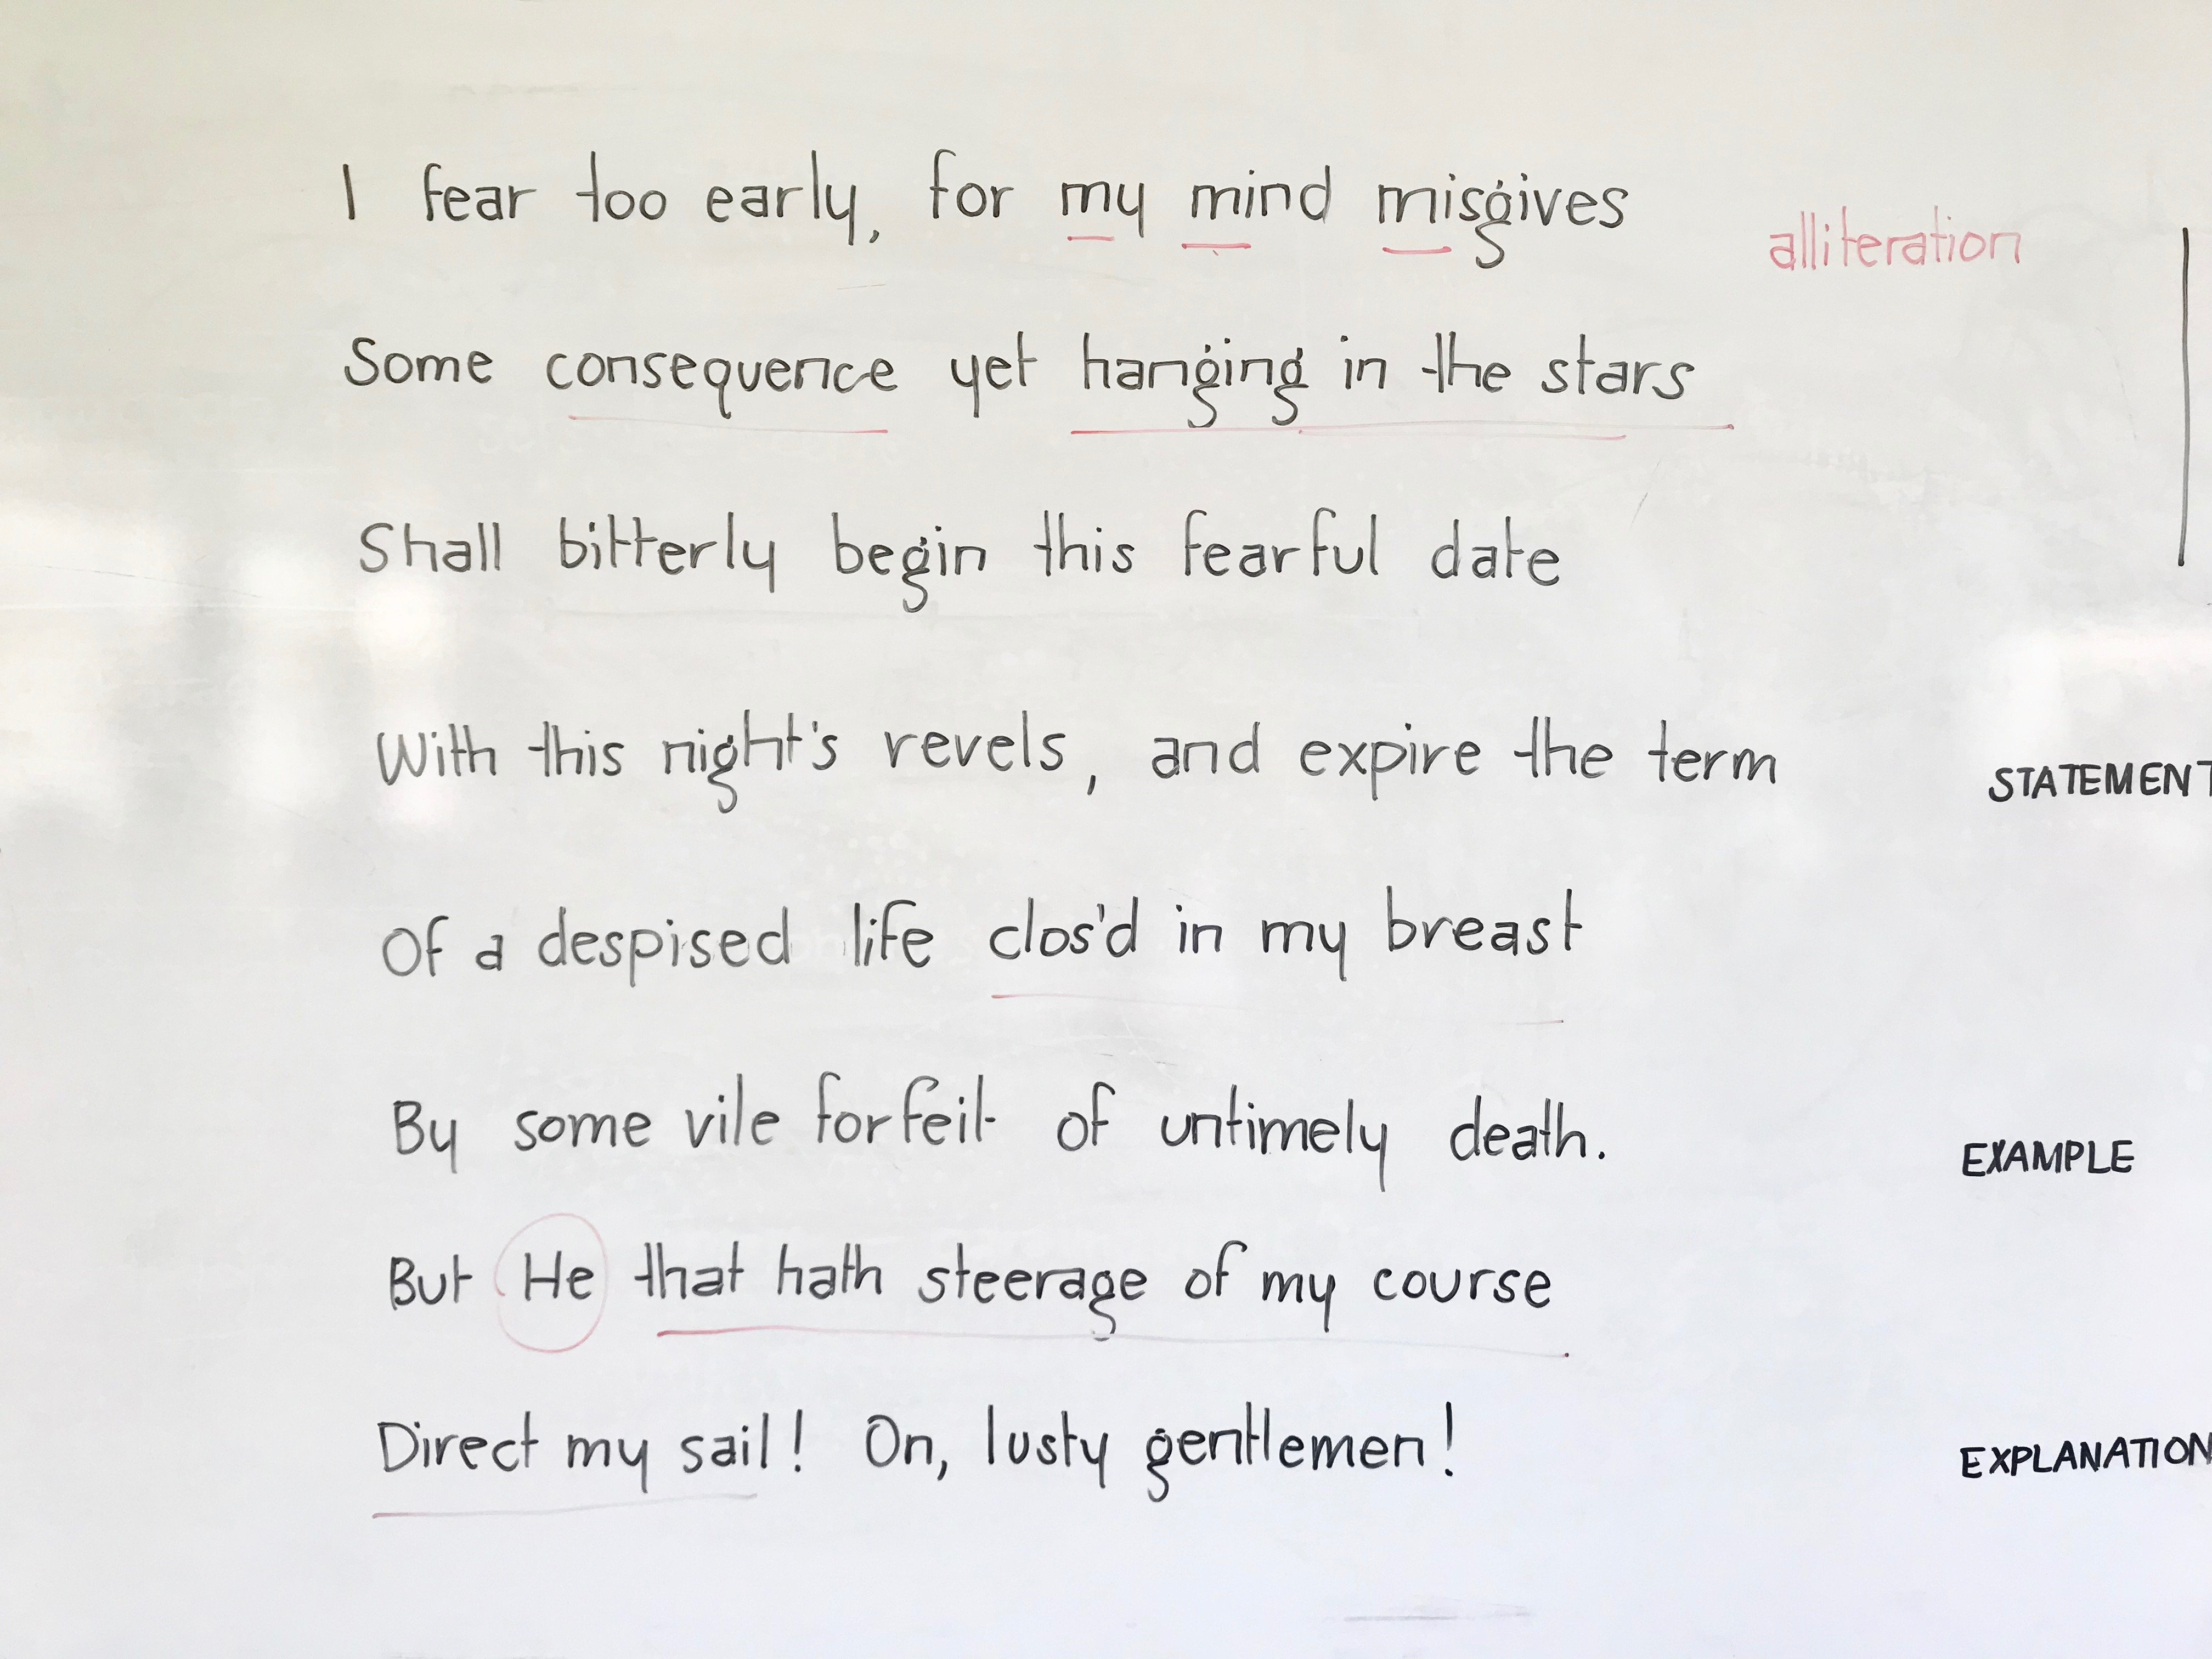 I fear too early, for my mind misgives
alliteration
Some consequence yet hanging in the stars
Shall bitterly begin this fearful date
With this night's revels, and expire the term
STATEMENT
Of a despised life clos'd in my breast
By some vile forfeit of untimely death.
EXAMPLE
But He that hath steerage of my course
Direct my sail! On, lusty gentlemen!
EXPLANATION